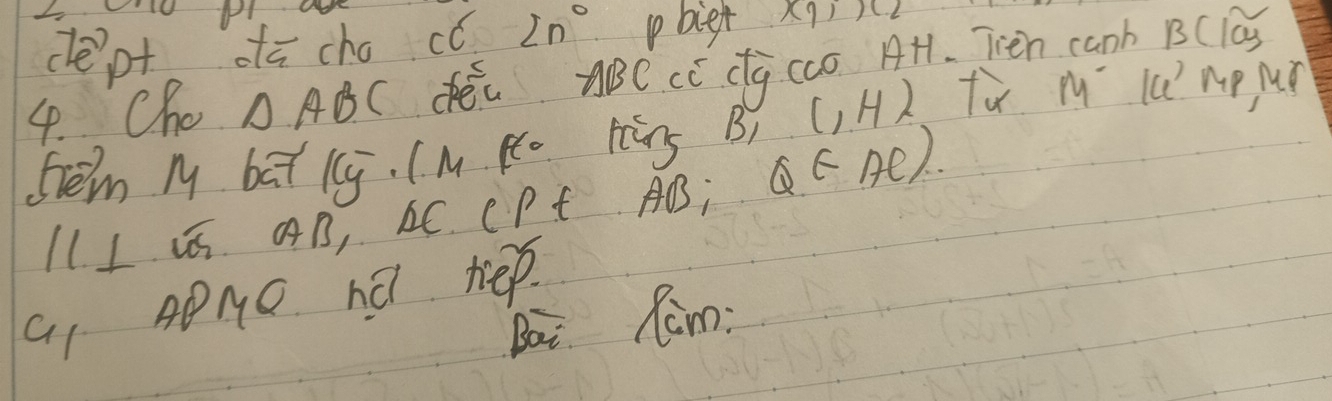 để pt đã cho có 2 n° p biệt x1; x2
4. Cho Δ ABC đều ABC có đg cao AH. Trên cạnh BC lấy
điểm M bất kỳ. (M ko trùng B, C, H) Từ M kẻ MP, MQ
lll ⊥ với AB, AC (P ∈ AB; Q ∈ AC).
a, APMQ nội tiếp.
Bài làm: